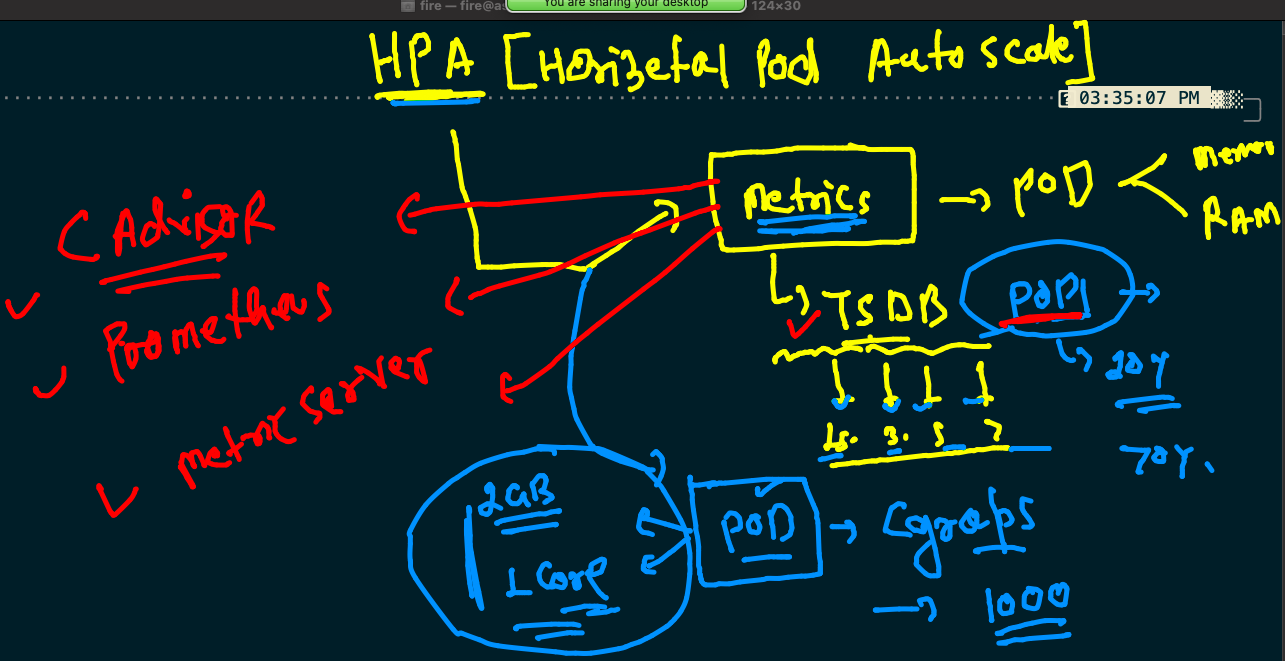 fire — fire@as
You are sharing your desktop
124×30
HPA [Horizetal Pod Autoscale]
03:35:07 PM
metrics
→ POD
RAM
CAdvisor
Prometheus
metric server
TSDB
POD
1s. 3. 5 7
70%.
2GB
1 Core
POD → Cgroups
→ 1000